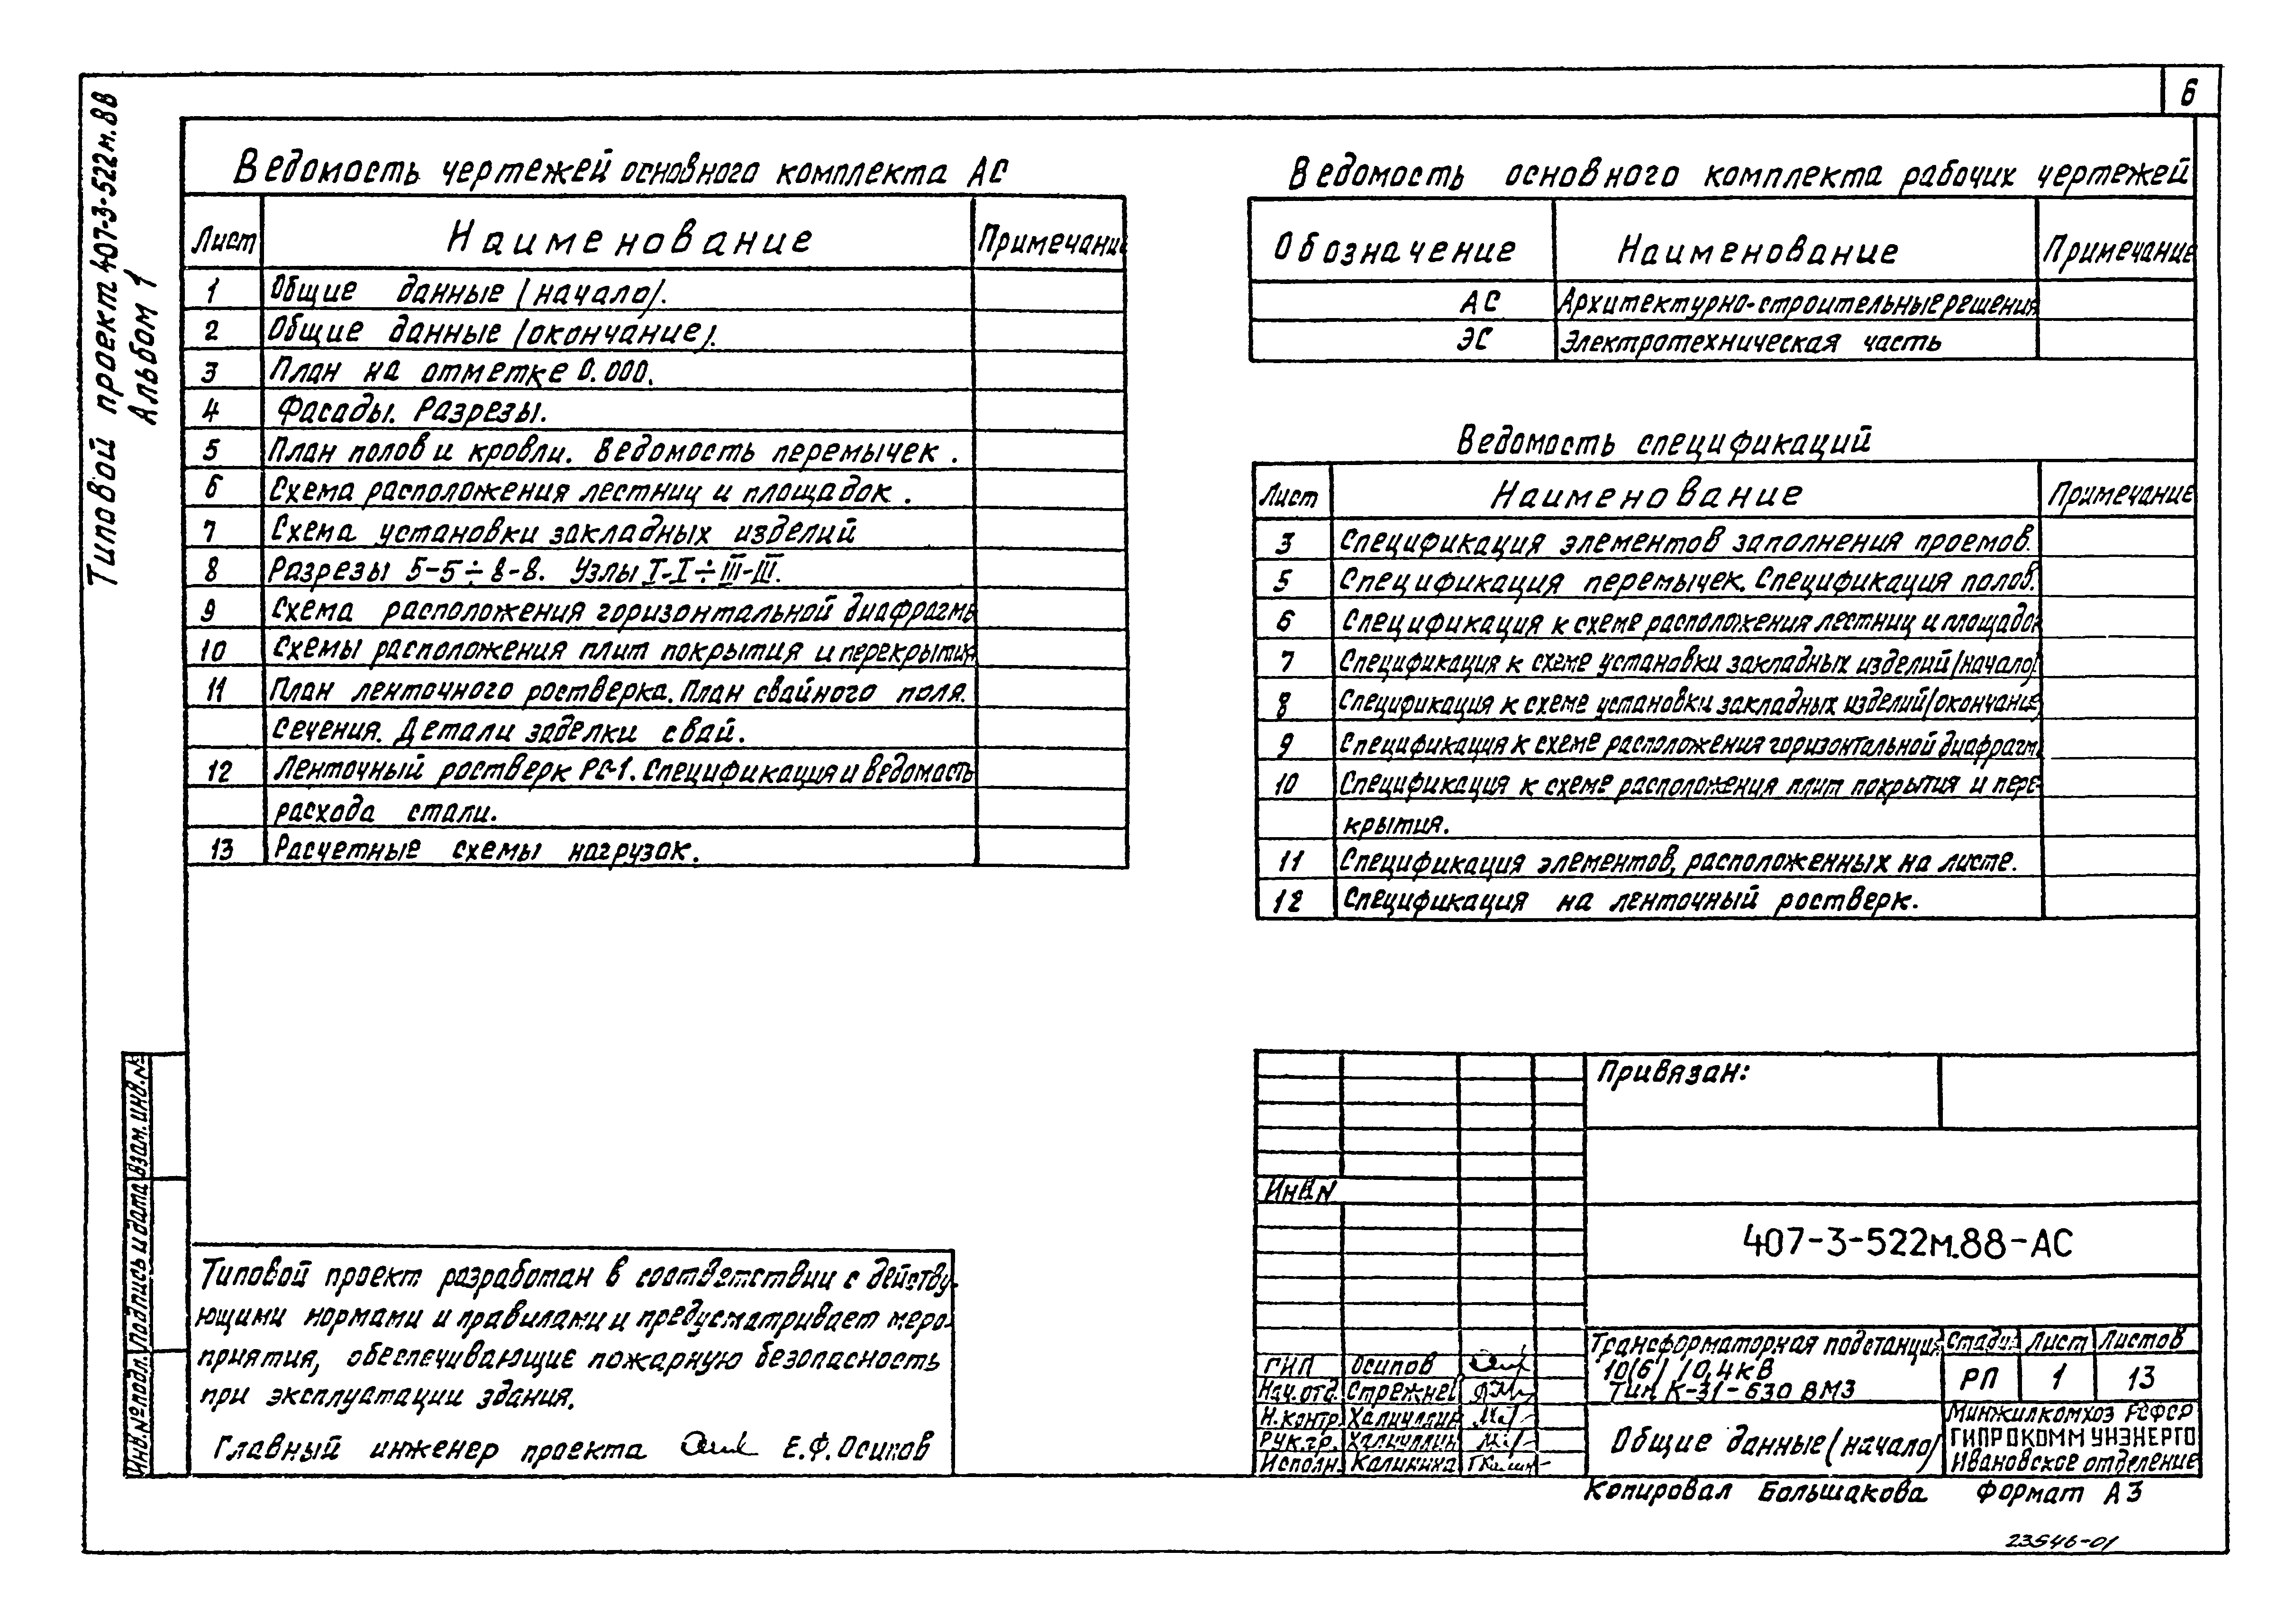 6
Типовой проект 407-3-522м.88
Альбом 1
Ведомость чертежей основного комплекта АС
Лист Наименование Примечание
1 Общие данные (начало).
2 Общие данные (окончание).
3 План на отметке 0.000.
4 Фасады. Разрезы.
5 План полов и кровли. Ведомость перемычек.
6 Схема расположения лестниц и площадок.
7 Схема установки закладных изделий
8 Разрезы 5-5÷8-8. Узлы I-I÷III-III.
9 Схема расположения горизонтальной диафрагмы
10 Схемы расположения плит покрытия и перекрытия
11 План ленточного ростверка. План свайного поля.
Сечения. Детали заделки свай.
12 Ленточный ростверк РС-1. Спецификация и ведомость
расхода стали.
13 Расчетные схемы нагрузок.
Ведомость основного комплекта рабочих чертежей
Обозначение Наименование Примечание
АС Архитектурно-строительные решения
ЭС Электротехническая часть
Ведомость спецификаций
Лист Наименование Примечание
3 Спецификация элементов заполнения проемов.
5 Спецификация перемычек. Спецификация полов.
6 Спецификация к схеме расположения лестниц и площадок
7 Спецификация к схеме установки закладных изделий (начало)
8 Спецификация к схеме установки закладных изделий (окончание)
9 Спецификация к схеме расположения горизонтальной диафрагм
10 Спецификация к схеме расположения плит покрытия и пере-
крытия.
11 Спецификация элементов, расположенных на листе.
12 Спецификация на ленточный ростверк.
Инв.№подл. Подпись и дата Взам.инв.№
Типовой проект разработан в соответствии с действу-
ющими нормами и правилами и предусматривает меро-
приятия, обеспечивающие пожарную безопасность
при эксплуатации здания.
Главный инженер проекта Е.Ф.Осипов
Привязан:
Инв.N
407-3-522м.88-АС
ГИП Осипов
Нач.отд. Стрежнев
Н.контр. Халиуллин
Рук.гр. Халиуллин
Исполн. Калинина
Трансформаторная подстанция
10(6)/0,4кВ
Тип К-31-630 ВМ3
Стадия Лист Листов
РП 1 13
Общие данные (начало)
Минжилкомхоз РСФСР
ГИПРОКОММУНЭНЕРГО
Ивановское отделение
Копировал Большакова Формат А3
23546-01